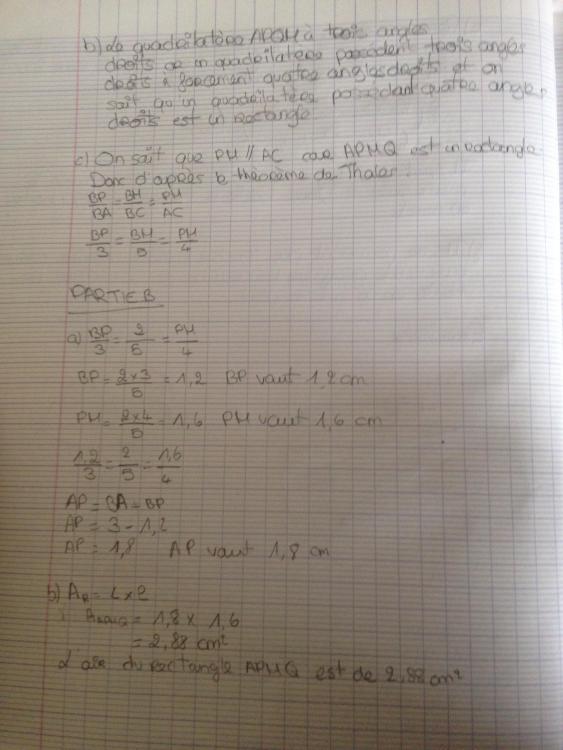 b) Le quadrilatère APMQ à trois angles
droits or un quadrilatère possédent trois angles
droits à forcement quatre angles droits et on
sait qu'un quadrilatère possédant quatre angles
droits est un rectangle
c) On sait que PM // AC car APMQ est un rectangle
Donc d'après le théorème de Thales :
BP/BA = BM/BC = PM/AC
BP/3 = BM/5 = PM/4
PARTIE B
a) BP/3 = 2/5 = PM/4
BP = 2×3/5 = 1,2 BP vaut 1,2 cm
PM = 2×4/5 = 1,6 PM vaut 1,6 cm
1,2/3 = 2/5 = 1,6/4
AP = BA - BP
AP = 3 - 1,2
AP = 1,8 AP vaut 1,8 cm
b) A = L × l
A APMQ = 1,8 × 1,6
= 2,88 cm²
L'aire du rectangle APMQ est de 2,88 cm²